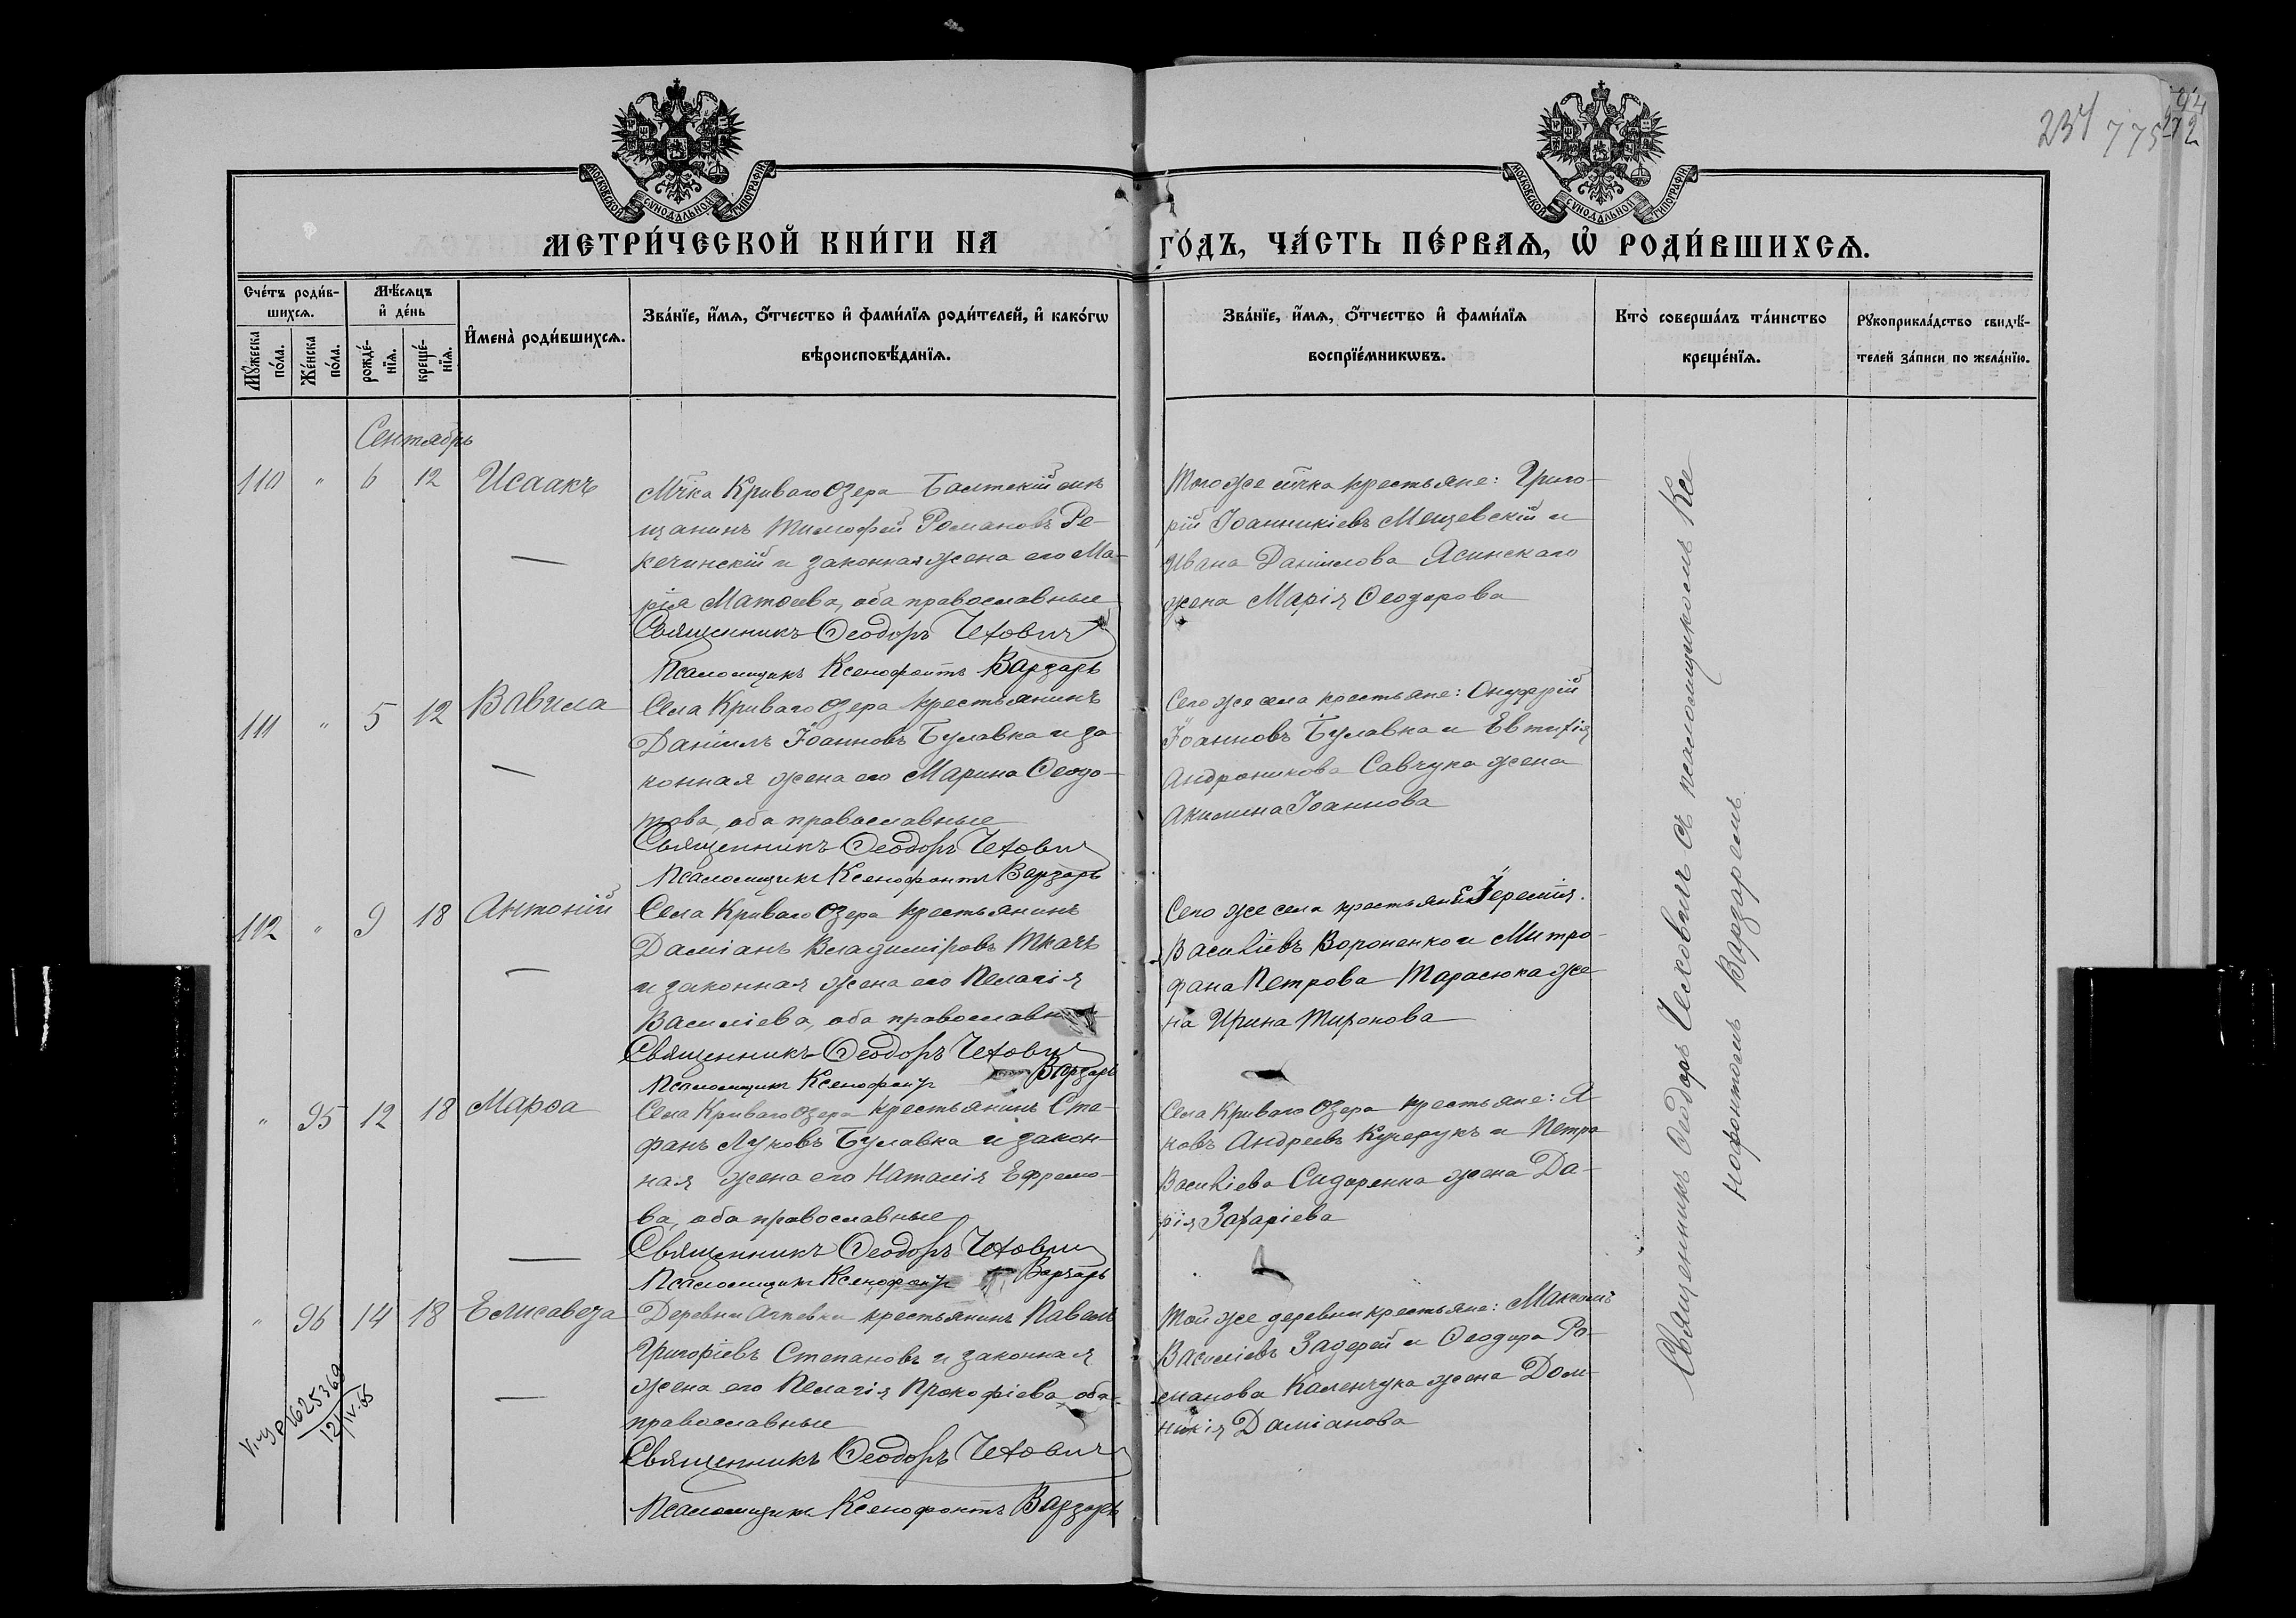 237 775
МОСКОВСКОЙ СУНОДАЛЬНОЙ ТИПОГРАФІИ
МОСКОВСКОЙ СУНОДАЛЬНОЙ ТИПОГРАФІИ
МЕТРИ́ЧЕСКОЙ КНИ́ГИ НА
ГО́ДЪ, ЧА́СТЬ ПЕ́РВАѦ, Ѡ҆ РОДИ́ВШИХСѦ.
Сче́тъ роди́в-
шихсѧ.
Мꙋ́жеска по́ла.
Же́нска по́ла.
Мѣ́сѧцъ
и҆ де́нь
рожде́-
нїѧ.
креще́-
нїѧ.
И҆мена̀ роди́вшихсѧ.
Зва́нїе, и҆́мѧ, ѻ҆́тчество и҆ фами́лїѧ роди́телей, и҆ како́гѡ
вѣроисповѣ́данїѧ.
Зва́нїе, и҆́мѧ, ѻ҆́тчество и҆ фами́лїѧ
воспрїе́мникѡвъ.
Кто̀ соверша́лъ та́инство
креще́нїѧ.
Рꙋкоприкла́дство свидѣ́-
телей за́писи по жела́нїю.
Сентябрь
110 " 6 12 Исаакъ
Мч̃ка Криваго Озера Балтскій мѣ-
щанинъ Тимофей Романовъ Ре-
кечинскій и законная жена его Ма-
рія Матѳеева, оба православные
Священникъ Ѳеодоръ Чехович
Псаломщикъ Ксенофонтъ Вардарь
Того же м̃чка крестьяне: Григо-
рій Іоанникіевъ Мещевскій и
Ивана Даніилова Ясинскаго
жена Марія Ѳеодорова
111 " 5 12 Вавила
Села Криваго Озера крестьянинъ
Даніилъ Іоанновъ Булавка и за-
конная жена его Марина Ѳеодо-
това, оба православные
Священникъ Ѳеодоръ Чехович
Псаломщикъ Ксенофонтъ Вардарь
Сего же села крестьяне: Онуфрій
Іоанновъ Булавка и Евтихія
Андроникова Савчука жена
Акилина Іоаннова
112 " 9 18 Антоній
Села Криваго Озера крестьянинъ
Даміанъ Владиміровъ Ткачъ
и законная жена его Пелагія
Василіева, оба православные
Священникъ Ѳеодоръ Чехович
Псаломщикъ Ксенофонт Вардарь
Сего же села крестьяне Іеремія
Василіевъ Вороненко и Митро-
фана Петрова Тарасюка же-
на Ирина Миронова
" 95 12 18 Марѳа
Села Криваго Озера крестьянинъ Сте-
фанъ Луковъ Булавка и закон-
ная жена его Наталія Ефремо-
ва, оба православные
Священникъ Ѳеодоръ Чехович
Псаломщикъ Ксенофонт Вардарь
Села Криваго Озера крестьяне: Я-
ковъ Андреевъ Кучерукъ и Петра
Василіева Сидоренка жена Да-
рія Захаріева
" 96 14 18 Елисавета
Деревни крестьянинъ Павелъ
Григоріевъ Степановъ и законная
жена его Пелагія Прокофіева, оба
православные
Священникъ Ѳеодоръ Чехович
Псаломщикъ Ксенофонтъ Вардарь
Той же деревни крестьяне: Максимъ
Василіевъ Задерей и Ѳеодора Ро-
манова Каленчука жена Дом-
никія Даміанова
Священникъ Ѳеодоръ Чеховичъ съ псаломщикомъ Ксе
нофонтомъ Вардаремъ
1625369
12/IV.65